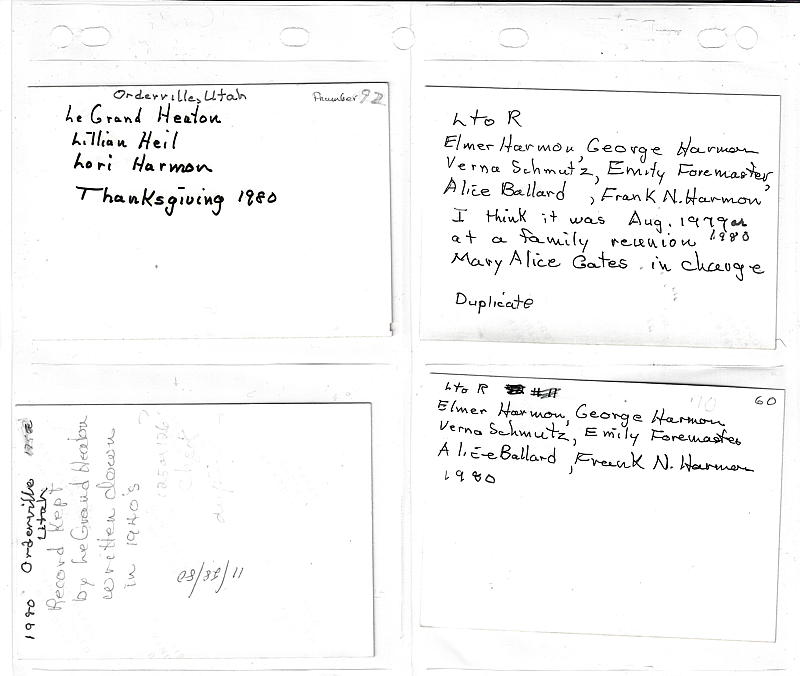 Orderville, Utah
Number 92
Le Grand Heaton
Lillian Heil
Lori Harmon
Thanksgiving 1980
L to R
Elmer Harmon, George Harmon
Verna Schmutz, Emily Foremaster,
Alice Ballard , Frank N. Harmon
I think it was Aug. 1979 or
at a family reunion 1980
Mary Alice Gates in charge
Duplicate
1980 Orderville
Utah
Record Kept
by LeGrand Heaton
written down
in 1940's
11/28/80
L to R
60
Elmer Harmon, George Harmon
Verna Schmutz, Emily Foremaster
Alice Ballard , Frank N. Harmon
1980